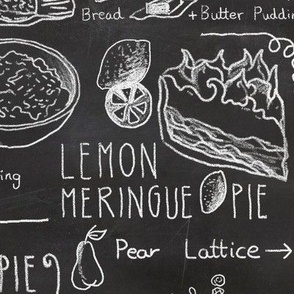 Bread + Butter Puddin
LEMON
MERINGUE PIE
ing
Pear Lattice →
PIE